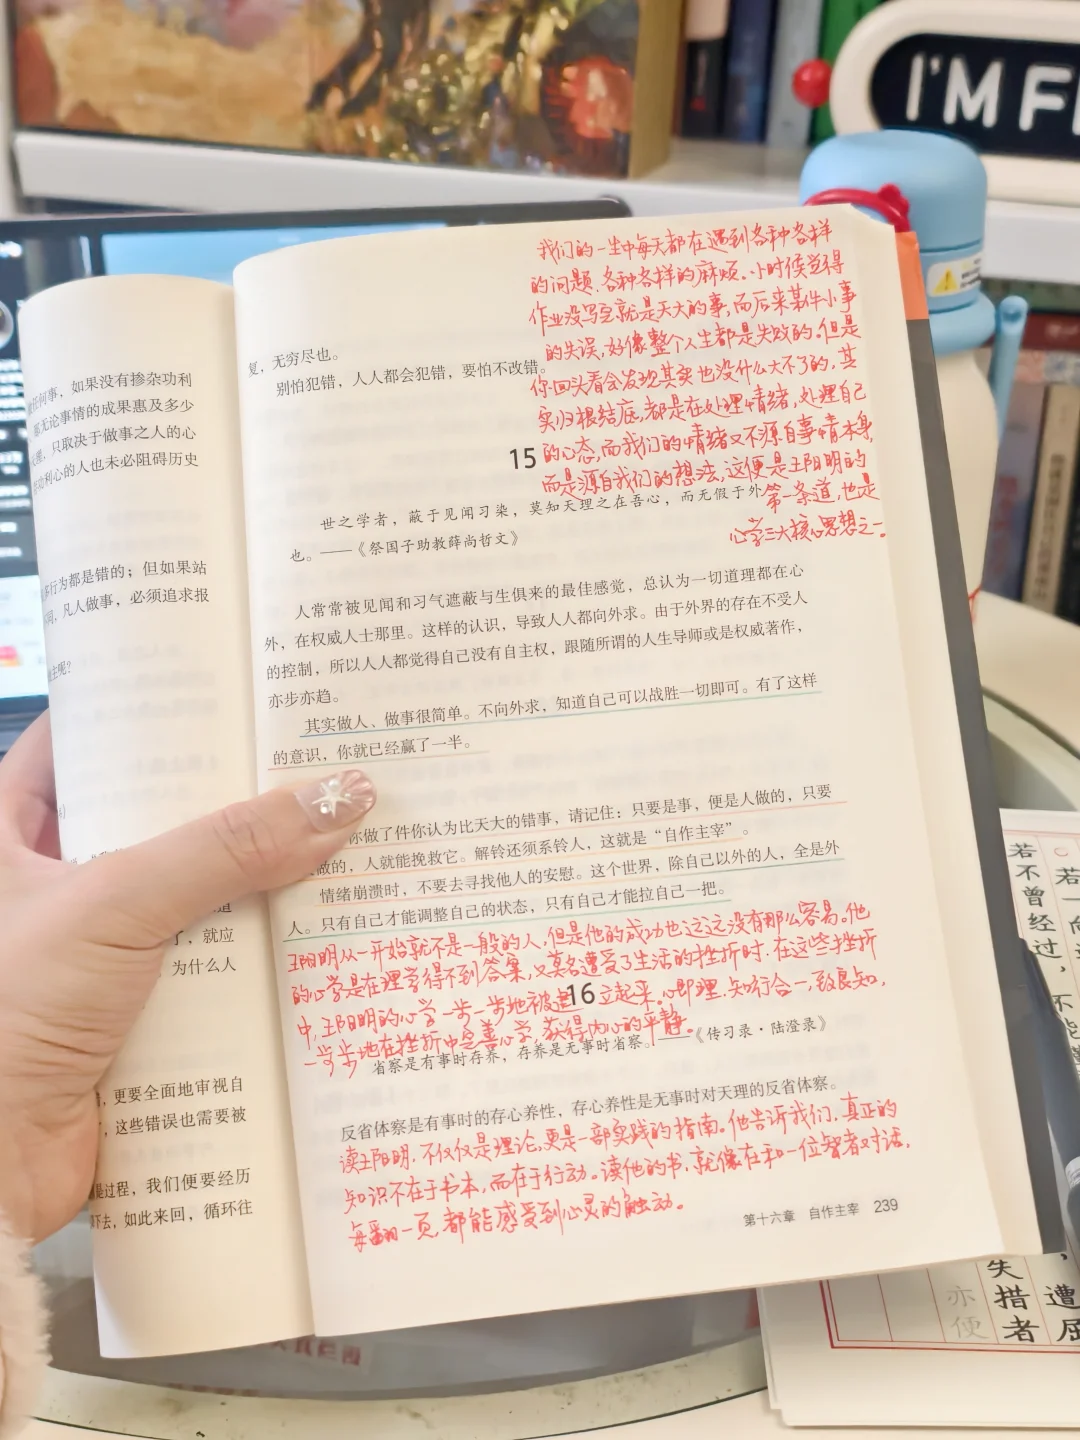 I'M F
我们的一生中每天都在遇到各种各样
的问题、各种各样的麻烦。小时候觉得
作业没写完就是天大的事,而后来某件小事
的失误,好像整个人生都是失败的。但是
你回头看会发现其实也没什么大不了的,其
实归根结底,都是在处理情绪,处理自己
的心态,而我们的情绪又不源自事情本身,
而是源自我们的想法,这便是王阳明的
第一条道,也是
心学三大核心思想之一。
复,无穷尽也。
别怕犯错,人人都会犯错,要怕不改错。
15
世之学者,蔽于见闻习染,莫知天理之在吾心,而无假于外
也。——《祭国子助教薛尚哲文》
人常常被见闻和习气遮蔽与生俱来的最佳感觉,总认为一切道理都在心
外,在权威人士那里。这样的认识,导致人人都向外求。由于外界的存在不受人
的控制,所以人人都觉得自己没有自主权,跟随所谓的人生导师或是权威著作,
亦步亦趋。
其实做人、做事很简单。不向外求,知道自己可以战胜一切即可。有了这样
的意识,你就已经赢了一半。
你做了件你认为比天大的错事,请记住:只要是事,便是人做的,只要
做的,人就能挽救它。解铃还须系铃人,这就是“自作主宰”。
情绪崩溃时,不要去寻找他人的安慰。这个世界,除自己以外的人,全是外
人。只有自己才能调整自己的状态,只有自己才能拉自己一把。
王阳明从一开始就不是一般的人,但是他的成功也远远没有那么容易。他
的心学是在理学得不到答案,又莫名遭受了生活的挫折时。在这些挫折
中,王阳明的心学一步一步地被建立起来。心即理,知行合一,致良知,
一步步地在挫折中完善心学,获得内心的平静。
16
省察是有事时存养,存养是无事时省察。——《传习录·陆澄录》
反省体察是有事时的存心养性,存心养性是无事时对天理的反省体察。
读王阳明,不仅仅是理论,更是一部实践的指南。他告诉我们,真正的
知识不在于书本,而在于行动。读他的书,就像在和一位智者对话,
每翻一页,都能感受到心灵的触动。
第十六章 自作主宰 239
任何事,如果没有掺杂功利
那无论事情的成果惠及多少
,只取决于做事之人的心
功利心的人也未必阻碍历史
行为都是错的;但如果站
,凡人做事,必须追求报
主呢?
道
了,就应
为什么人
,更要全面地审视自
,这些错误也需要被
是过程,我们便要经历
下去,如此来回,循环往
若一向
若不曾经过,不能
遭屈
失措者
亦便